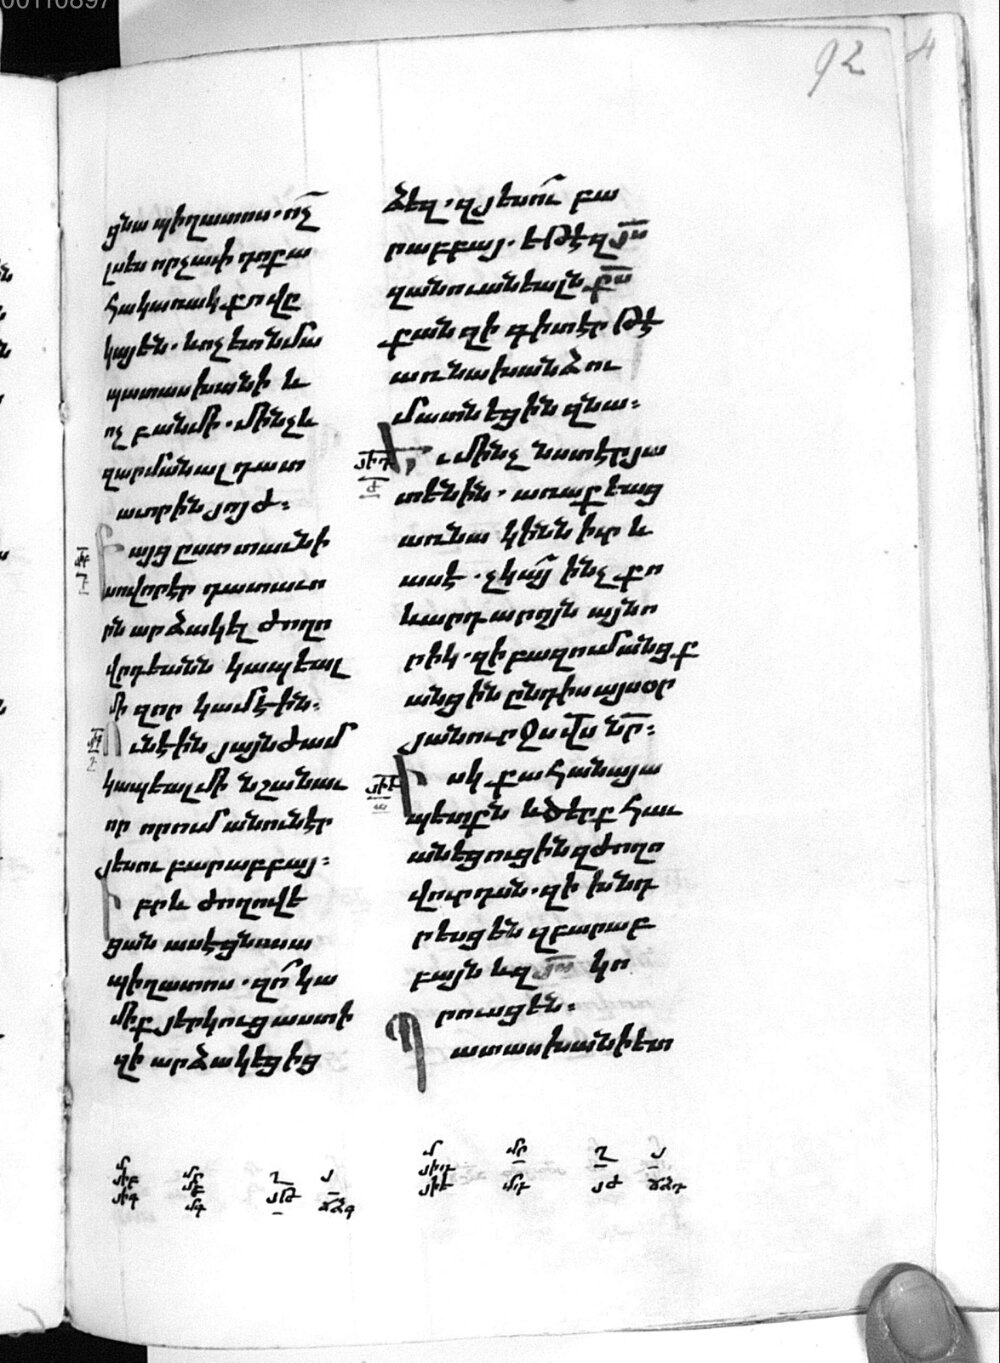 00110897
92
ցնա պիղատոս. ո՞չ
լսես որչափ դոքա
հակառակ քո վը
կայեն. ևոչ ետ նմա
պատասխանի և
ոչ բանմի. մինչև
զարմանալ դատ
աւորին յոյժ։
Բայց ըստ տաւնի
սովորէր դատաւո
րն արձակել ժողո
վրդեանն կապեալ
մի զոր կամէին։
Ունէին յայնժամ
կապեալ մի նշանաւ
որ որում անունէր
յեսու բարաբբայ։
Իբրև ժողովե
ցան ասէ ցնոսա
պիղատոս. զո՞ կա
միք յերկուց աստի
զի արձակեցից
ձեզ. զյեսո՞ւ բա
րաբբայ. եթէ զյս
զանուանեալն քս
քան զի գիտէր թէ
առ նախանձու
մատնեցին զնա։
Եւ մինչ նստէր յա
տենին. առաքեաց
առ նա կինն իւր և
ասէ. չկայ ինչ քո
և արդարոյն այնո
րիկ. զի բազում անցք
անցին ընդիս այսօր
յանուրջս վս նր։
Իսկ քահանայա
պետքն և ծերք հաւ
անեցուցին զժողո
վուրդսն. զի խնդ
րեսցեն զբարաբ
բայն և զյս կո
րուսցեն։
Պատասխանի ետ